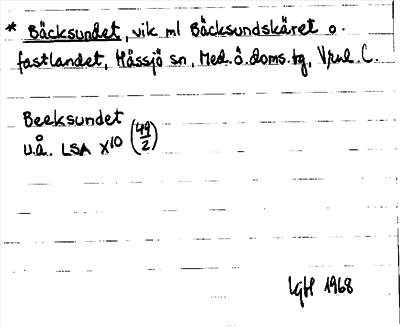 * Bäcksundet, vik ml Bäcksundskäret o.
fastlandet, Hässjö sn, Med.ö.doms.tg, Vrnl. C.
Beeksundet
u.å. LSA X10 (49/2)
LgH 1968